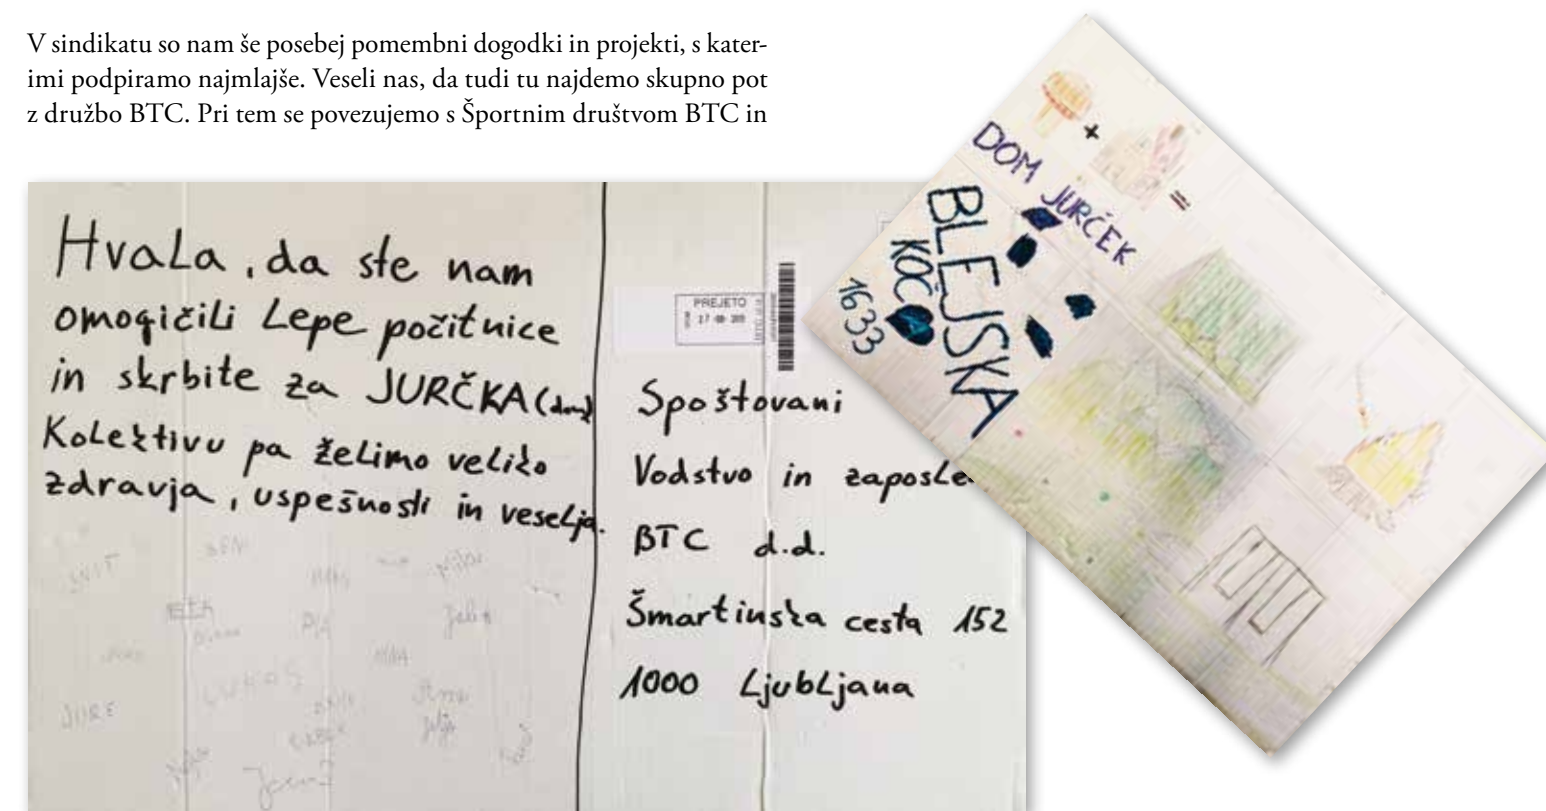 V sindikatu so nam še posebej pomembni dogodki in projekti, s kater-
imi podpiramo najmlajše. Veseli nas, da tudi tu najdemo skupno pot
z družbo BTC. Pri tem se povezujemo s Športnim društvom BTC in
Hvala, da ste nam
omogičili lepe počitnice
in skrbite za JURČKA (dom)
Kolektivu pa želimo veliko
zdravja, uspešnosti in veselja.
JURE
LUKAS
PIA
NINA
PREJETO
Spoštovani
Vodstvo in
BTC d.d.
Šmartinska cesta 152
1000 Ljubljana
+
=
DOM JURČEK
BLEJSKA
KOČA
1633